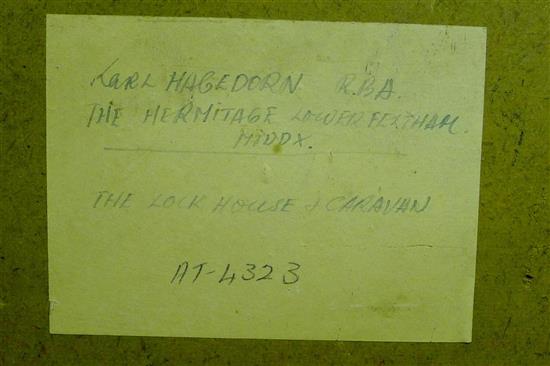 KARL HAGEDORN R.B.A.
THE HERMITAGE LOWER FELTHAM.
MIDDX.
THE LOCK HOUSE & CARAVAN
AT-4323